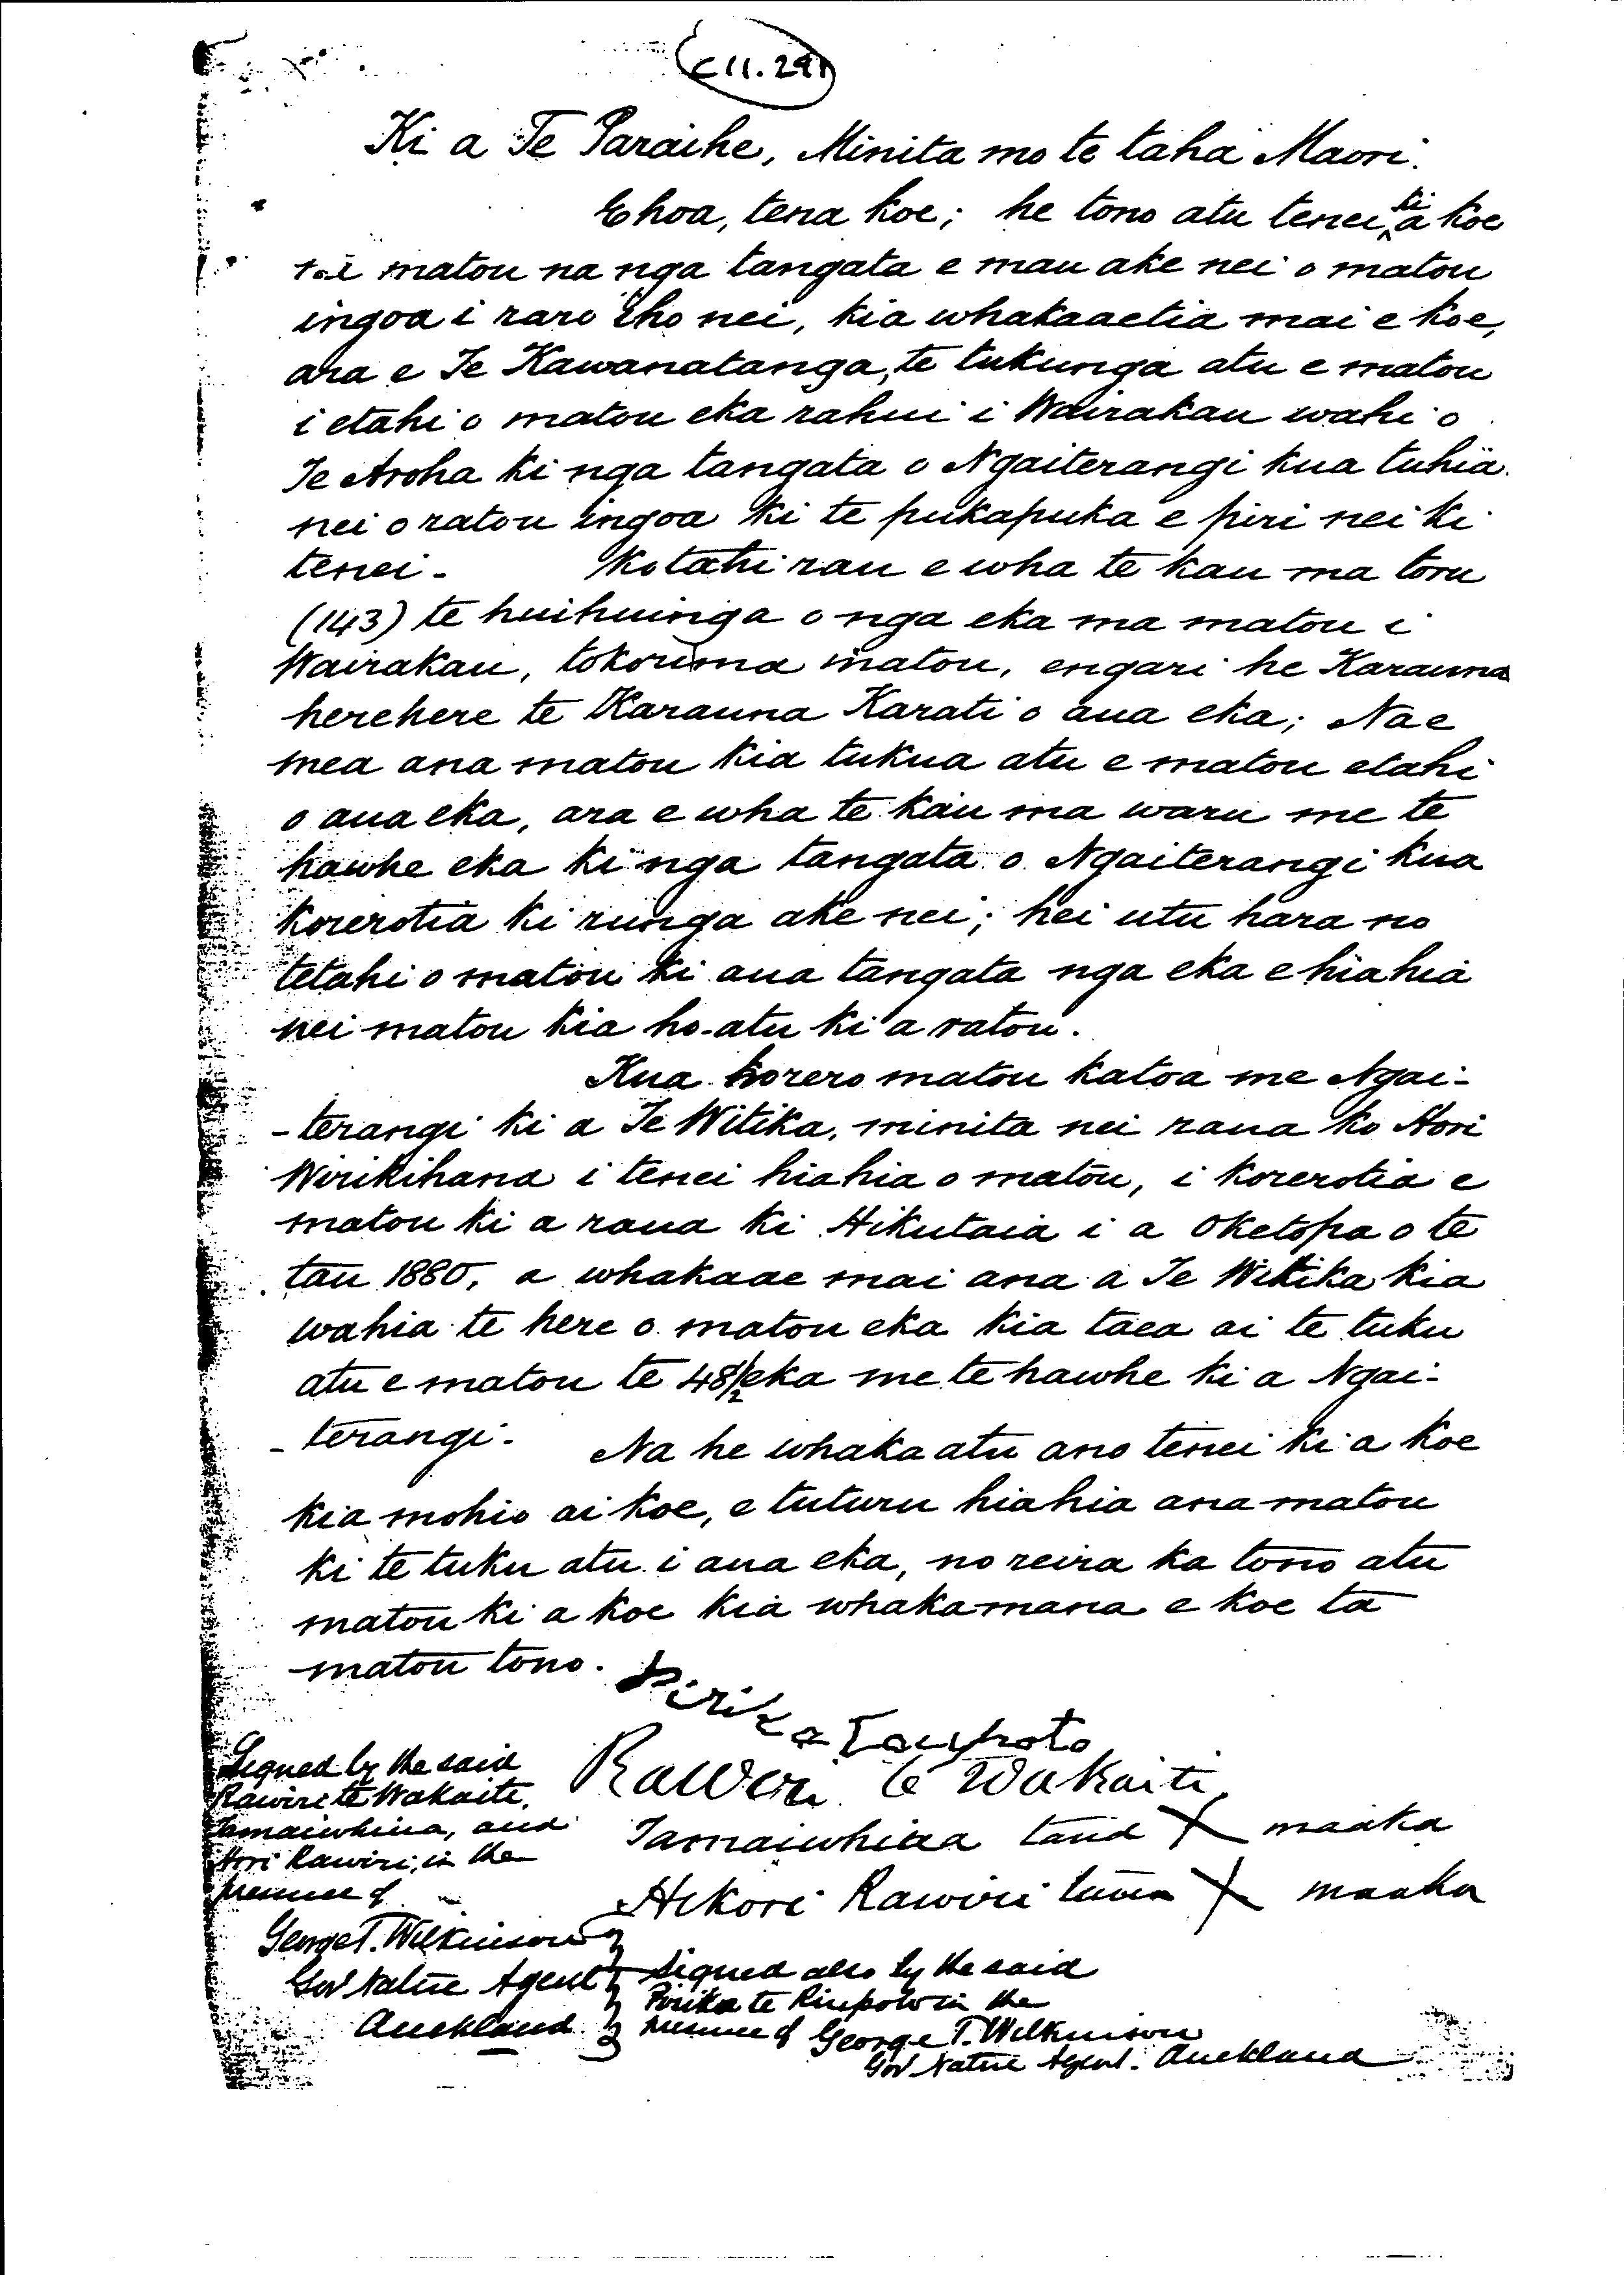 C11.291
Ki a Te Paraihe, Minita mo te taha Maori.
Ehoa, tena koe; he tono atu tenei ki a koe
na matou na nga tangata e mau ake nei o matou
ingoa i raro iho nei, kia whakaaetia mai e koe,
ara e Te Kawanatanga, te tukunga atu e matou
i etahi o matou eka rahui i Wairakau wahi o
Te Aroha ki nga tangata o Ngaiterangi kua tuhia
nei o ratou ingoa ki te pukapuka e piri nei ki
tenei - Kotahi rau e wha te kau ma toru
(143) te huihuinga o nga eka ma matou i
Wairakau, tokorima matou, engari he Karauna
herehere te Karauna Karati o aua eka; Na e
mea ana matou kia tukua atu e matou etahi
o aua eka, ara e wha te kau ma waru me te
hawhe eka ki nga tangata o Ngaiterangi kua
korerotia ki runga ake nei; hei utu hara no
tetahi o matou ki aua tangata nga eka e hiahia
nei matou kia ho-atu ki a ratou.
Kua korero matou katoa me Ngai-
-terangi ki a Te Witika, minita nei raua ko Hori
Wirikihana i tenei hiahia o matou, i korerotia e
matou ki a raua ki Hikutaia i a Oketopa o te
tau 1880, a whakaae mai ana a Te Witika kia
wahia te here o matou eka kia taea ai te tuku
atu e matou te 48½ eka me te hawhe ki a Ngai-
-terangi - Na he whakaatu ano tenei ki a koe
kia mohio ai koe, e tuturu hiahia ana matou
ki te tuku atu i aua eka, no reira ka tono atu
matou ki a koe kia whakamana e koe ta
matou tono.
Pirika
Rawiri te Wakaiti
Tamaiwhiua tana X maaka
Hori Rawiri tana X maaka
Signed by the said
Rawiri te Wakaiti,
Tamaiwhiua, and
Hori Rawiri, in the
presence of
George T. Wilkinson
Gov Native Agent
Auckland
Signed also by the said
Pirika te in the
presence of George T. Wilkinson
Gov Native Agent. Auckland